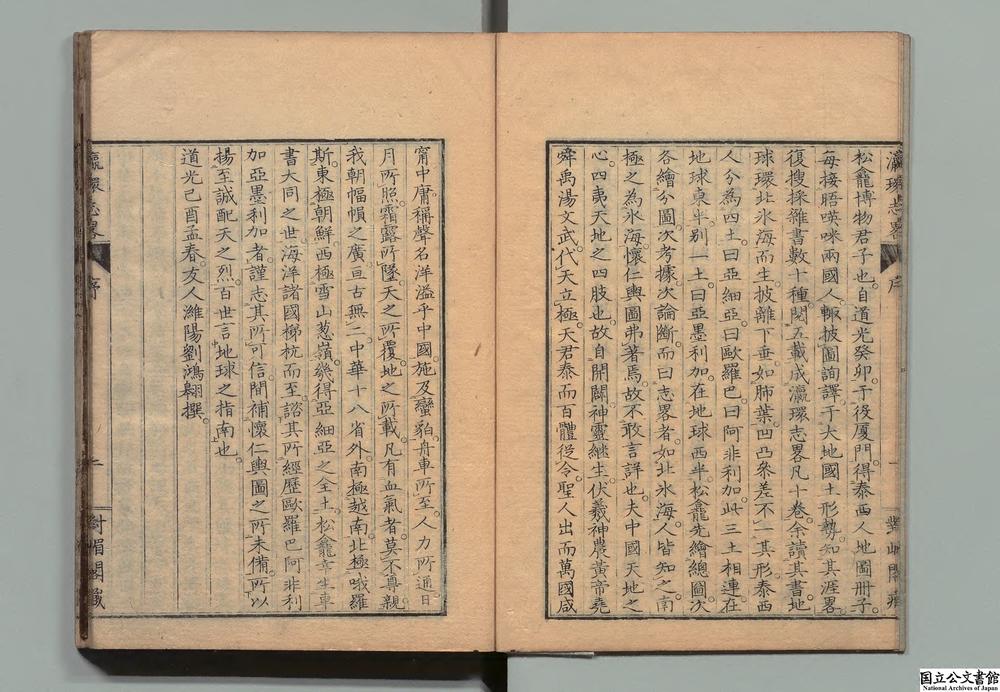 瀛環志畧 序 一
松龕博物君子也自道光癸卯于役厦門得泰西人地圖冊子
每接晤𠸄咪兩國人輒披圖詢譯于大地國土形勢知其涯畧
復搜採雜書數十種閱五載成瀛環志畧凡十卷余讀其書地
球環北氷海而生披離下垂如肺葉凹凸參差不一其形泰西
人分為四土曰亞細亞曰歐羅巴曰阿非利加此三土相連在
地球東半别一土曰亞墨利加在地球西半松龕先繪總圖次
各繪分圖次考據次論斷而曰志畧者如北氷海人皆知之南
極之為氷海懷仁輿圖弗著焉故不敢言詳也夫中國天地之
心四夷天地之四肢也故自開闢神靈継生伏羲神農黃帝堯
舜禹湯文武代天立極天君泰而百體從令聖人出而萬國咸
甯中庸稱聲名洋溢乎中國施及蠻貊舟車所至人力所通日
月所照霜露所墜天之所覆地之所載凡有血氣者莫不尊親
我朝幅幀之廣亘古無二中華十八省外南極越南北極哦羅
斯東極朝鮮西極雪山葱嶺㡬得亞細亞之全土松龕幸生車
書大同之世海洋諸國梯杭而至諮其所經歷歐羅巴阿非利
加亞墨利加者謹志其所可信間補懷仁輿圖之所未備所以
揚至誠配天之烈百世言地球之指南也
道光己酉孟春友人濰陽劉鴻翱撰
瀛環志畧 序 二 對嵋閣藏
国立公文書館
National Archives of Japan